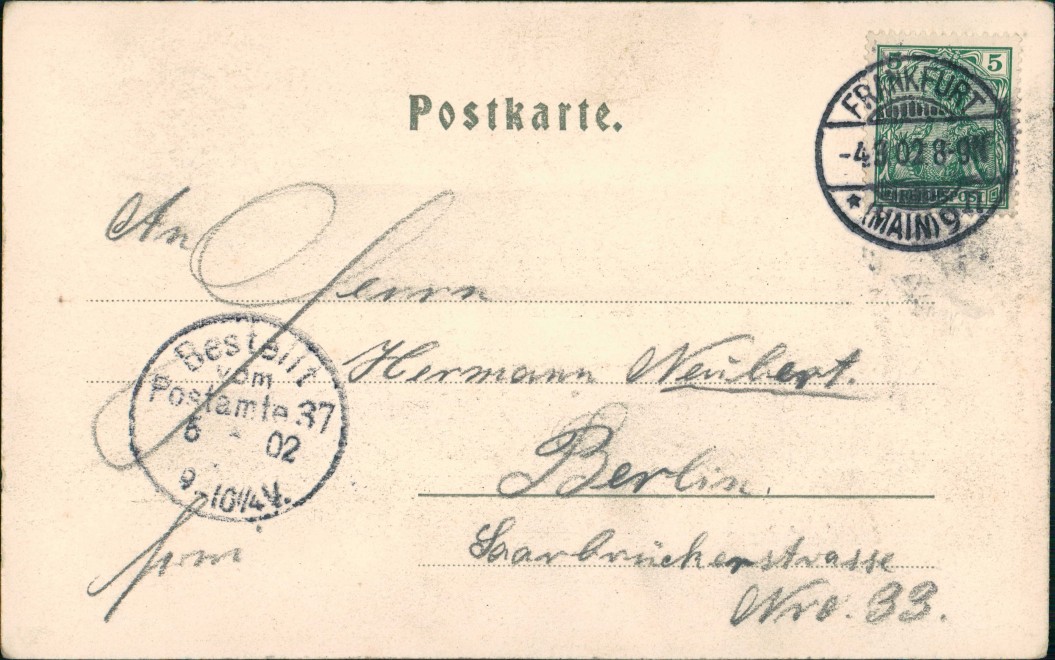 Postkarte.
5 5
FRANKFURT
-4. 02 8-9N
* (MAIN) 9
REICHSPOST
An
Herrn
Hermann Neubert.
Berlin.
Saarbrückerstrasse
Nro. 33.
Bestellt
vom
Postamte 37
02
9-10 1/4 V.